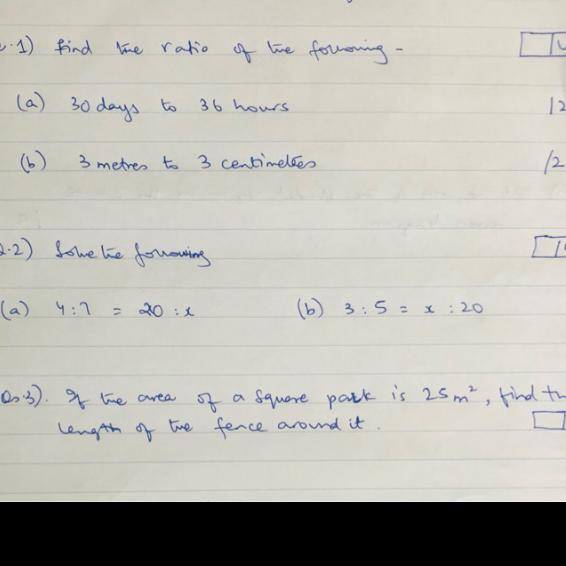 .1) Find the ratio of the following -
(a) 30 days to 36 hours /2
(b) 3 metres to 3 centimetres /2
Q.2) Solve the following
(a) 4:7 = 20 : x (b) 3 : 5 = x : 20
Qs.3). If the area of a square park is 25m², find th
length of the fence around it.